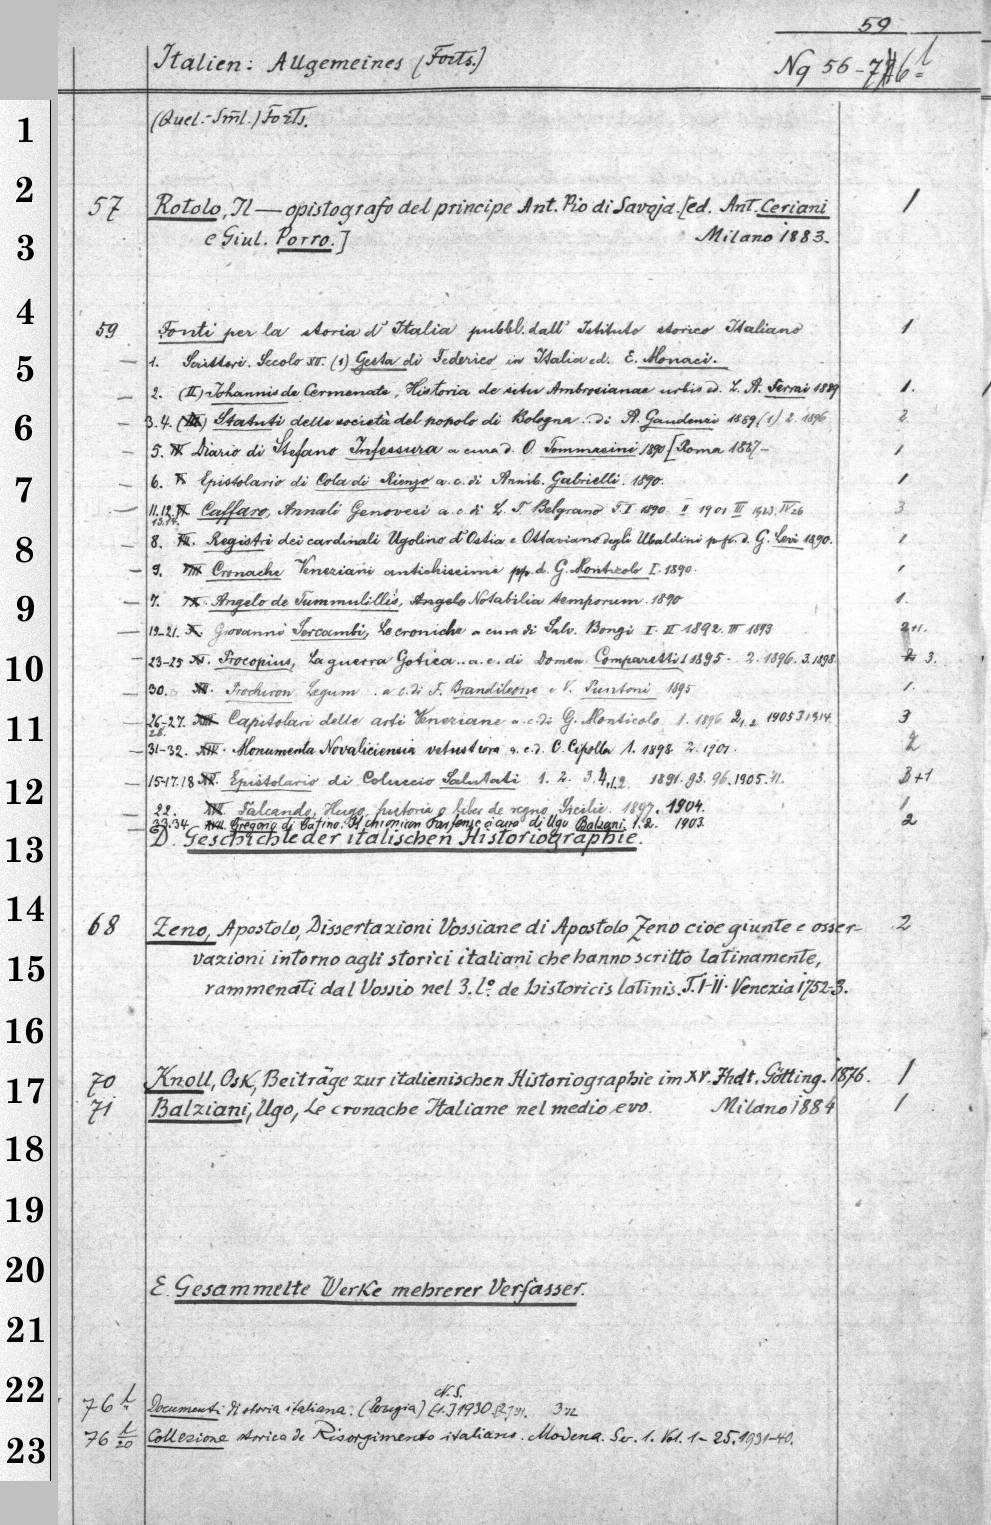 59
Italien: Allgemeines (Forts.)
Nq 56-
(Quel.-Sml.) Forts.
1
2
57 Rotolo, Il — opistografo del principe Ant. Pio di Savoja. [ed. Ant. Ceriani 1
3
e Giul. Porro.] Milano 1883.
4
59 Fonti per la storia d'Italia pubbl. dall' Istituto storico Italiano 1
5
— 1. Scrittori. Secolo XII. (1) Gesta di Federico in Italia ed. E. Monaci.
— 2. (II) Johannis de Cermenate, Historia de situ Ambrosianae urbis ed. L. A. Ferrai 1889 1.
6
— 3.4. (III) Statuti delle società del popolo di Bologna .. di A. Gaudenzi 1889 (1) 2. 1896 2
— 5. Diario di Stefano Infessura a cura d. O. Tommasini 1890 [Roma 1887- 1
7
— 6. V. Epistolario di Cola di Rienzo a.c.di Annib. Gabrielli. 1890. 1
— 11.12. Caffaro, Annali Genovesi a.c.di L. T. Belgrano T.I 1890. II 1901 III 1923. IV 26 3
13.14.
8
— 8. VII. Registri dei cardinali Ugolino d'Ostia e Ottaviano degli Ubaldini p. p. d. G. Levi 1890. 1
— 9. VIII Cronache Veneziani antichissime pp. d. G. Monticolo I. 1890. 1
9
— 7. IX. Angelo de Tummulillis, Angelo Notabilia temporum. 1890 1.
— 19-21. X. Giovanni Sercambi, Le croniche a cura di Salv. Bongi I. II 1892. III 1893 2+1.
10
— 23-25 XI. Procopius, La guerra Gotica.. a.c. di Domen. Comparetti 1 1895. 2. 1896. 3. 1898. 3.
— 30. XII. Prochiron Legum .. a c. di F. Brandileone e V. Puntoni 1895 1.
11
— 26-27. XIII Capitolari delle arti Veneziane a.c.di G. Monticolo 1. 1896 2,1.2 1905 3 1914. 3
28.
— 31-32. XIV. Monumenta Novaliciensia vetustiora a.c.d. C. Cipolla 1. 1898 2. 1901. 2
12
— 15-17.18 XV. Epistolario di Coluccio Salutati 1. 2. 3, 4,1.2. 1891. 93. 96. 1905. 11. 3+1
— 22. XVI Falcando, Hugo, historia o liber de regno Sicilie. 1897. 1904. 1
— 33.34. XVII. Gregorio di Catino. Il chronicon Farfense a cura di Ugo Balzani. 1. 2. 1903. 2
13
D. Geschichte der italischen Historiographie.
14
68 Zeno, Apostolo, Dissertazioni Vossiane di Apostolo Zeno cioe giunte e osser- 2
15
vazioni intorno agli storici italiani che hanno scritto latinamente,
rammenati dal Vossio nel 3. l.º de historicis latinis. T. I-II. Venezia 1752-3.
16
17
70 Knoll, Osk, Beiträge zur italienischen Historiographie im XV. Jhdt. Götting. 1876. 1
71 Balziani, Ugo, Le cronache Italiane nel medio evo. Milano 1884 1
18
19
20
E. Gesammelte Werke mehrerer Verfasser.
21
22
N. S.
76 l Documenti di storia italiana: (Perugia) [1.] 1930
23
76 l/20 Collezione storica de Risorgimento italiano. Modena. Ser. 1. Vol. 1-25. 1931-40.